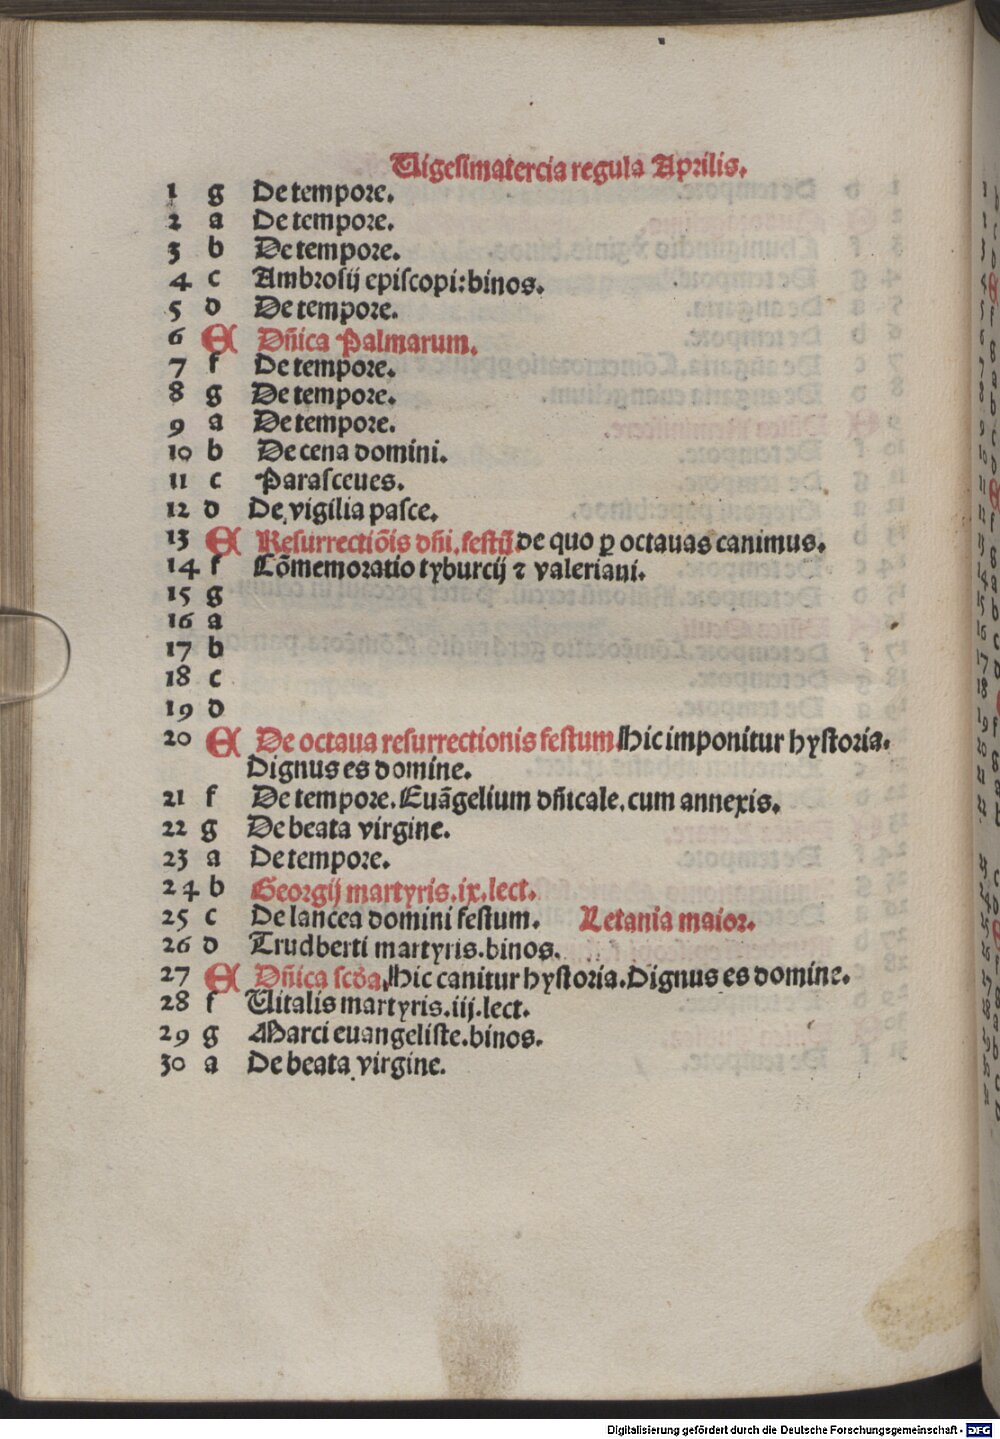 Uigesimatercia regula Aprilis.
1 g De tempore.
2 a De tempore.
3 b De tempore.
4 c Ambrosij episcopi: binos.
5 d De tempore.
6 E Dñica Palmarum.
7 f De tempore.
8 g De tempore.
9 a De tempore.
10 b De cena domini.
11 c Parasceues.
12 d De vigilia pasce.
13 E Resurrectiõis dñi. festũ. de quo ꝑ octauas canimus.
14 f Cõmemoratio tyburcij ⁊ valeriani.
15 g
16 a
17 b
18 c
19 d
20 E De octaua resurrectionis festum. Hic imponitur hystoria.
Dignus es domine.
21 f De tempore. Euãgelium dñicale. cum annexis.
22 g De beata virgine.
23 a De tempore.
24 b Georgij martyris. ix. lect.
25 c De lancea domini festum. Letania maior.
26 d Trudberti martyris. binos.
27 E Dñica scďa. Hic canitur hystoria. Dignus es domine.
28 f Uitalis martyris. iij. lect.
29 g Marci euangeliste. binos.
30 a De beata virgine.
Digitalisierung gefördert durch die Deutsche Forschungsgemeinschaft - DFG